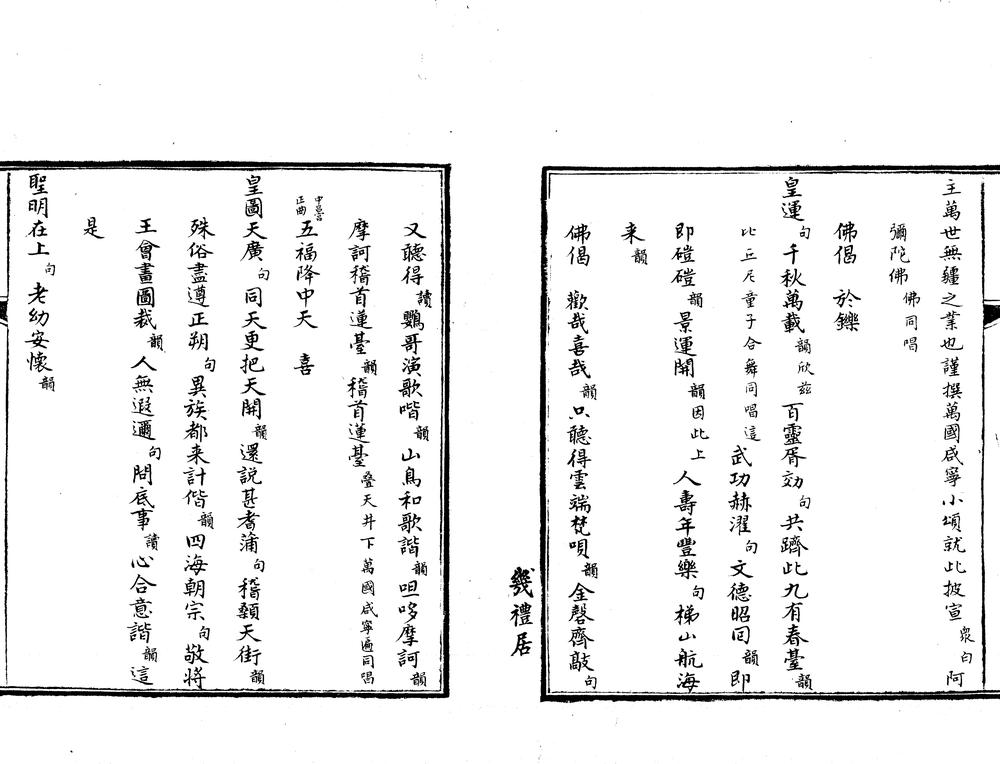 主萬世無疆之業也謹撰萬國咸寧小頌就此披宣衆白阿
彌陀佛佛同唱
佛偈　於鑠
皇運句千秋萬載韻欣兹百靈胥効句共躋此九有春臺韻
比丘尼童子合舞同唱這武功赫濯句文德昭回韻即
即磑磑韻景運開韻因此上人壽年豐樂句梯山航海
来韻
佛偈　歡哉喜哉韻只聽得雲端梵唄韻金磬齊敲句
幾禮居
又聽得讀鸚哥演歌喈韻山鳥和歌諧韻呾哆摩訶韻
摩訶稽首蓮臺韻稽首蓮臺疊天井下萬國咸寧遍同唱
中呂宮正曲五福降中天　喜
皇圖天廣句同天更把天開韻還說甚耆蒲句稽顙天街韻
殊俗盡遵正朔句異族都来計偕韻四海朝宗句敬將
王會畫圖裁韻人無遐邇句間底事讀心合意諧韻這
是
聖明在上句老幼安懷韻